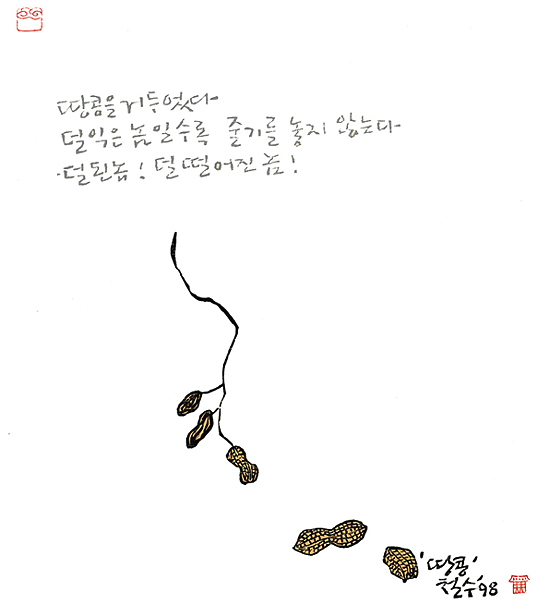 땅콩을 거두었다
덜익은 놈일수록 줄기를 놓지 않는다
덜된놈! 덜떨어진 놈!
'땅콩'
철수 '98